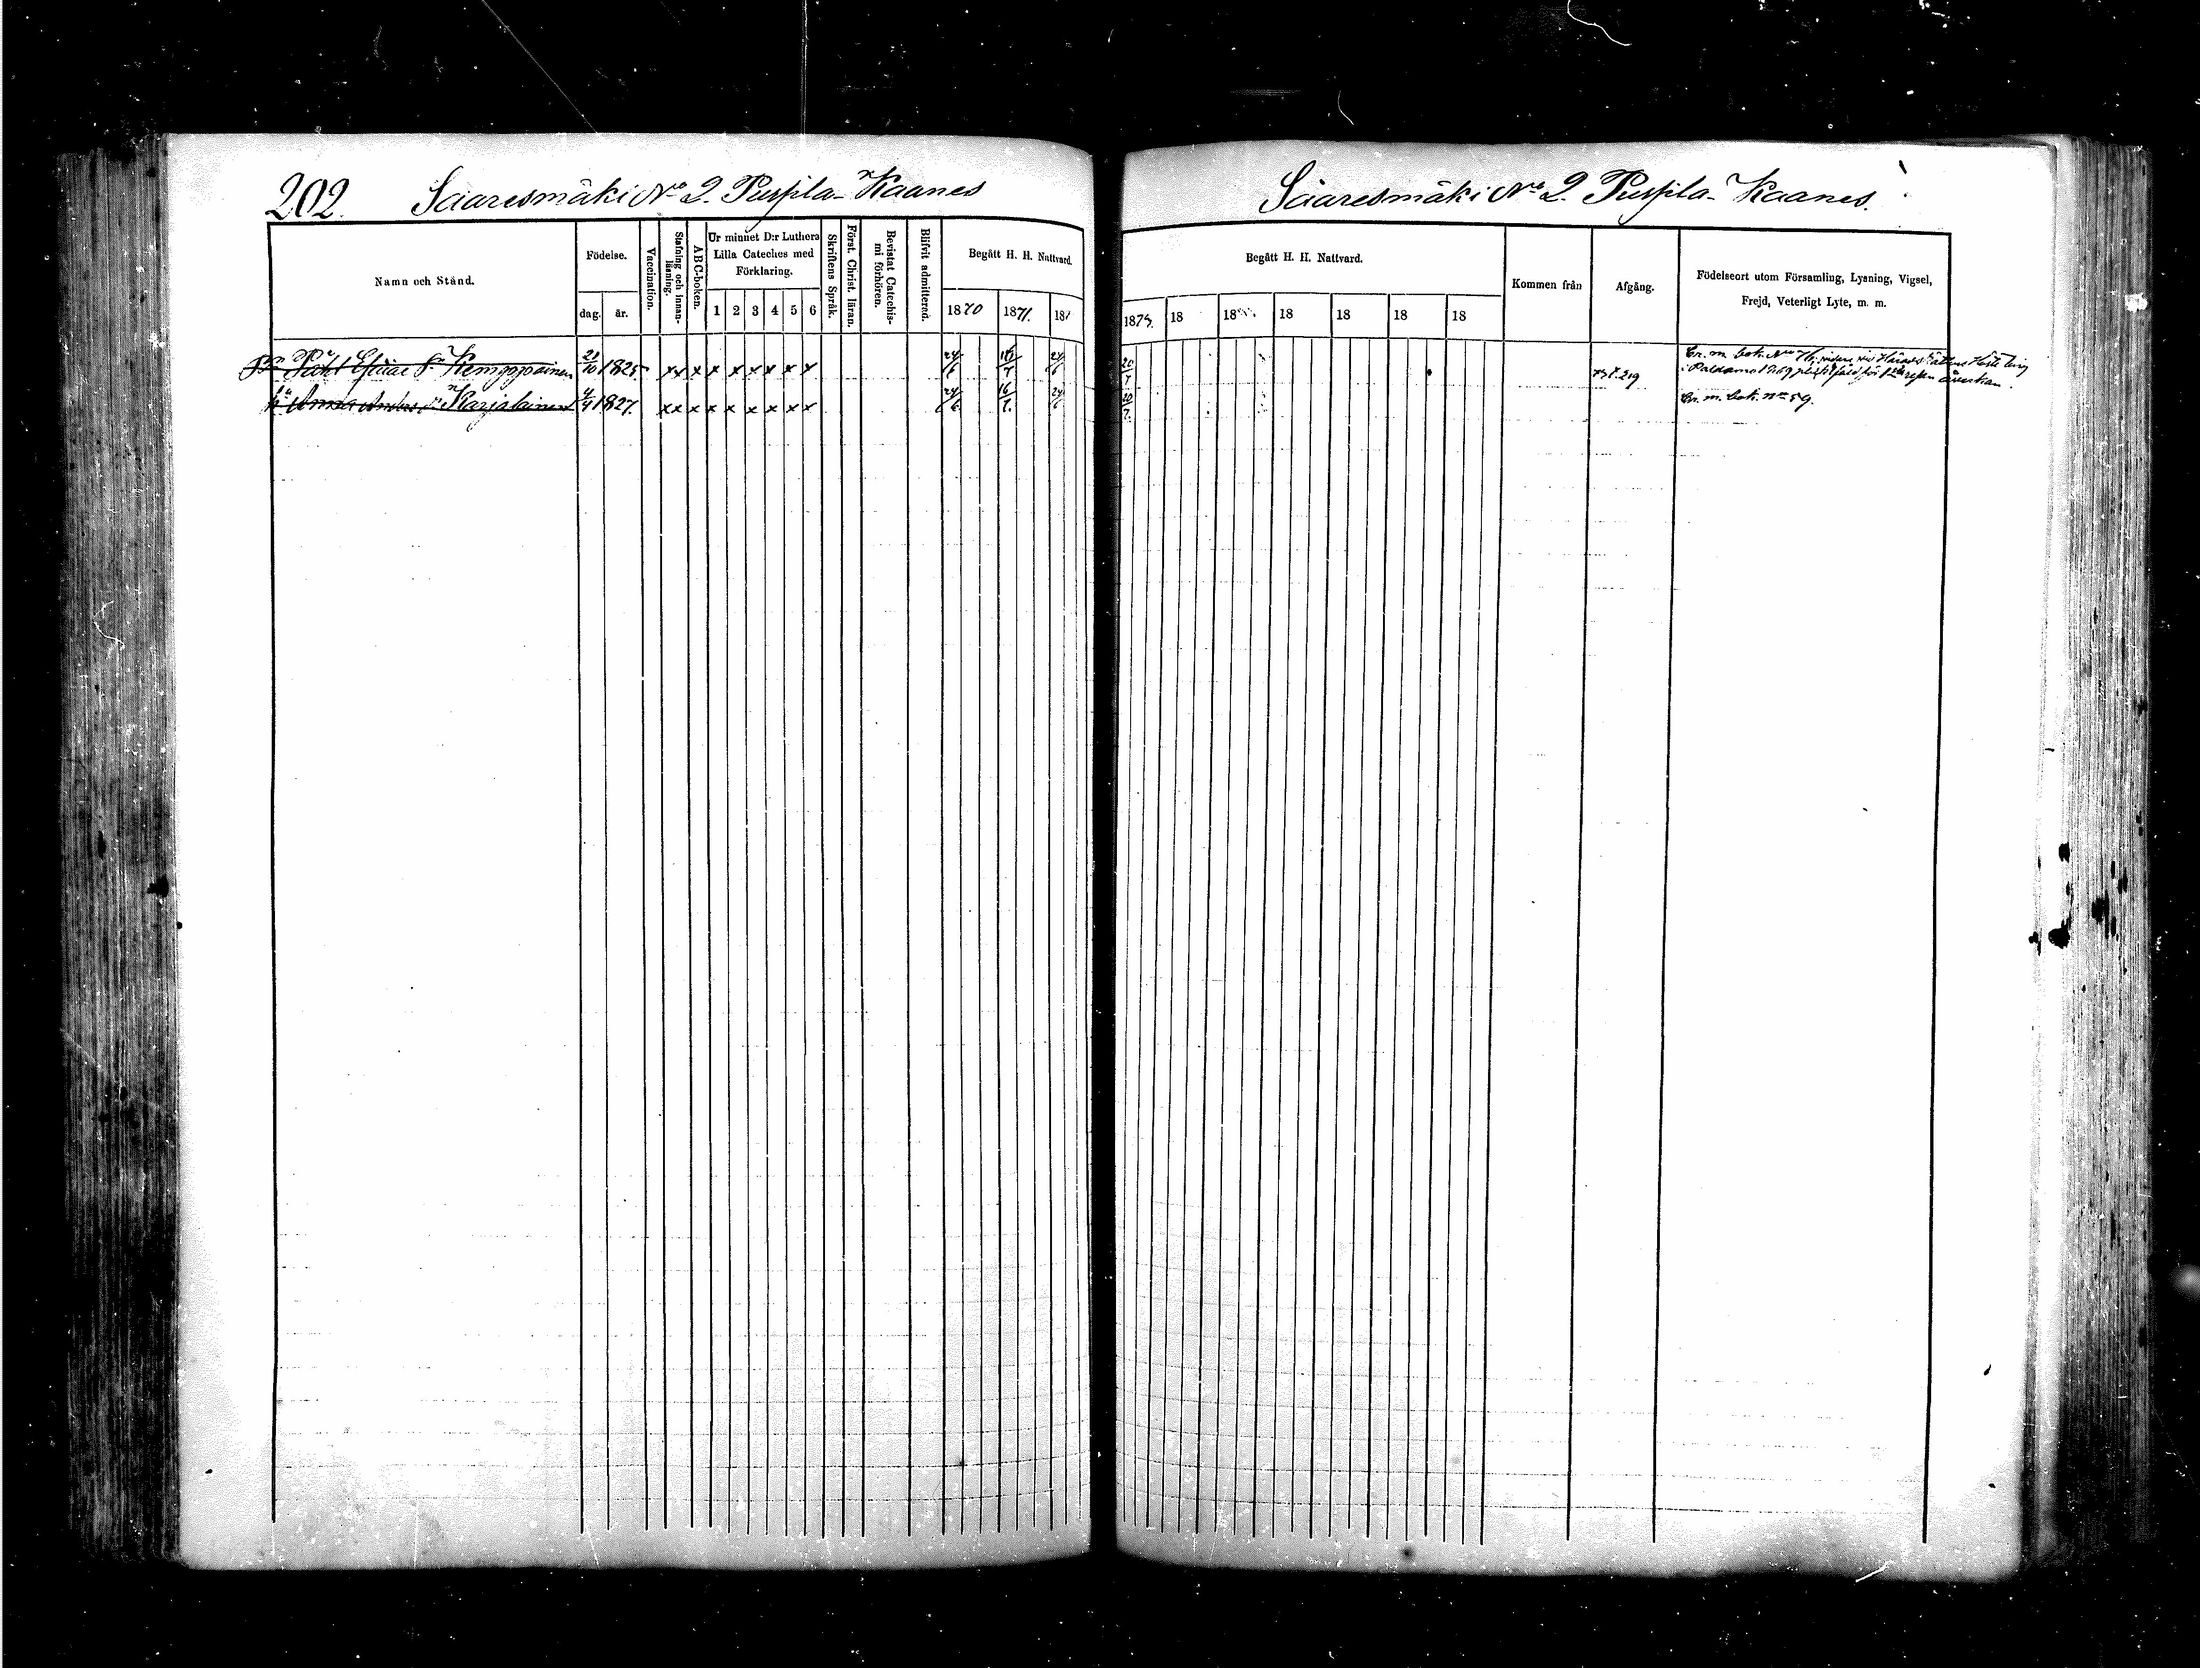 202. Saaresmäki No 2. Purpila-Kaanes
Saaresmäki No 2. Purpila-Kaanes.
Namn och Stånd.
Födelse.
dag. år.
Vaccination.
Stafning och innanläsning.
ABC-boken.
Ur minnet D:r Luthers
Lilla Cateches med
Förklaring.
1 2 3 4 5 6
Skriftens Språk.
Först. Christ. läran.
Bevistat Catechismi förhören.
Blifvit admitterad.
Begått H. H. Nattvard.
1870 1871. 187
Begått H. H. Nattvard.
1873. 18 18 18 18 18 18
Kommen från
Afgång.
Födelseort utom Församling, Lysning, Vigsel,
Frejd, Veterligt Lyte, m. m.
Kemppainen 21/10 1825. x x x x x x x x x 24/6 24/6 20/7
Anna Anders Karjalainen 4/4 1827. x x x x x x x x x 24/6 16/7. 24/6 20/7.
i Paldamo 1869
Cr. m. bok. no 59.